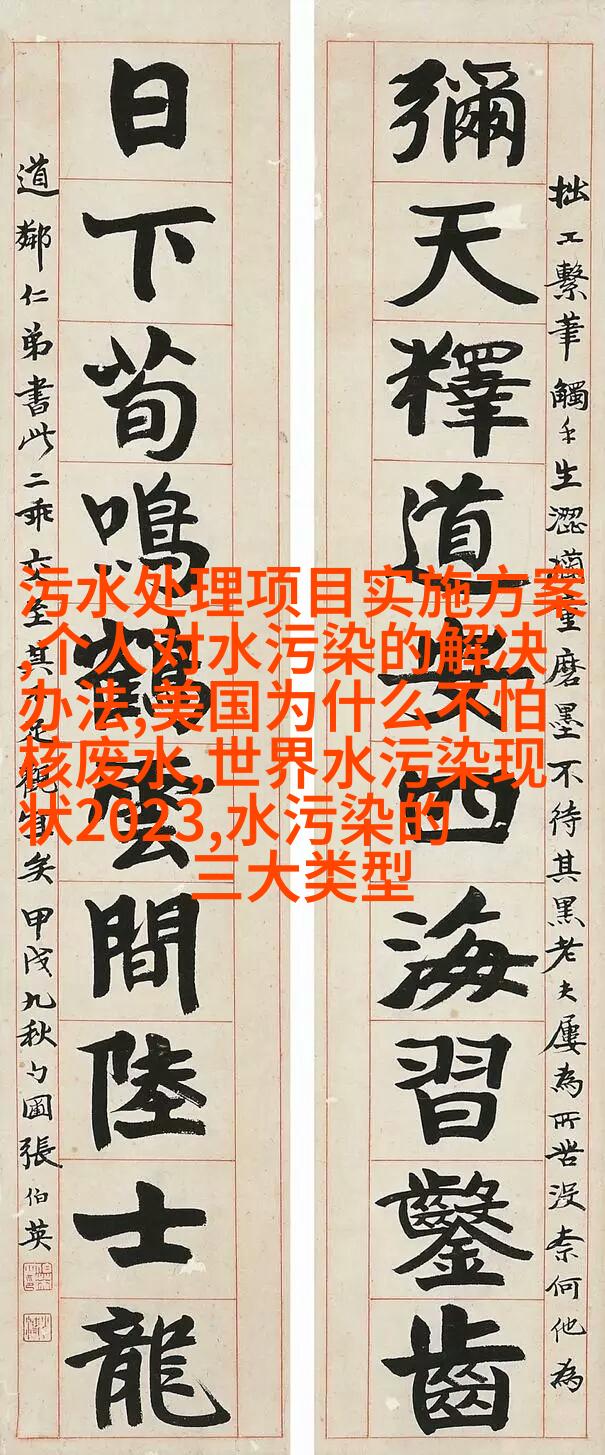 拙工繫筆觸手生澀童磨墨不待其黑老夫屢為所苦沒柰何他為
彌天釋道安四海習鑿齒
日下荀鳴鶴雲間陸士龍
道鄰仁弟書此二乖交至其不足觀宜矣甲戌九秋勺圃張伯英
污水处理项目实施方案
,个人对水污染的解决
办法,美国为什么不怕
核废水,世界水污染现
状2023,水污染的
三大类型